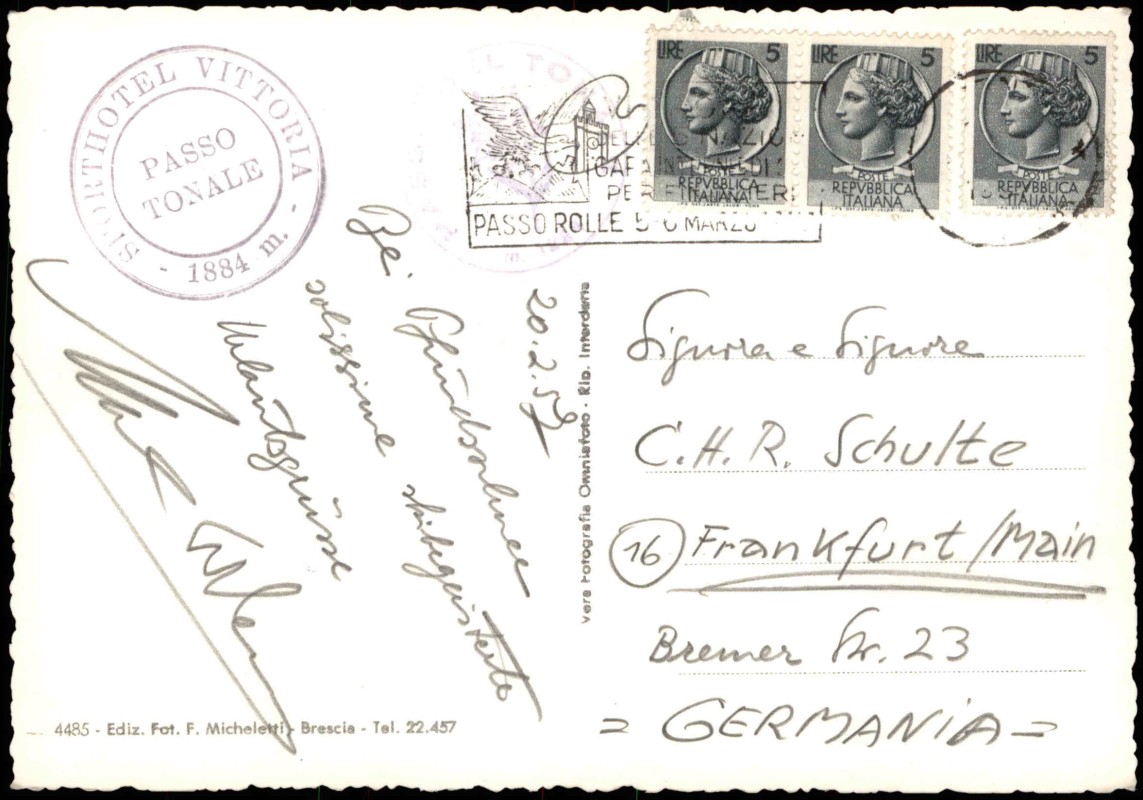 SPORTHOTEL VITTORIA
PASSO
TONALE
- 1884 m. -
LIRE 5
POSTE
REPVBBLICA
ITALIANA
LIRE 5
POSTE
REPVBBLICA
ITALIANA
LIRE 5
POSTE
REPVBBLICA
ITALIANA
PASSO ROLLE 5-6 MARZO
20.2.59
Bei
solissime skibegeisterte
Urlaubsgrüsse
Vera Fotografia Omniafoto - Rip. Interdetta
Signora e Signore
C.H.R. Schulte
16 Frankfurt/Main
Bremer Str. 23
= GERMANIA =
4485 - Ediz. Fot. F. Micheletti - Brescia - Tel. 22.457